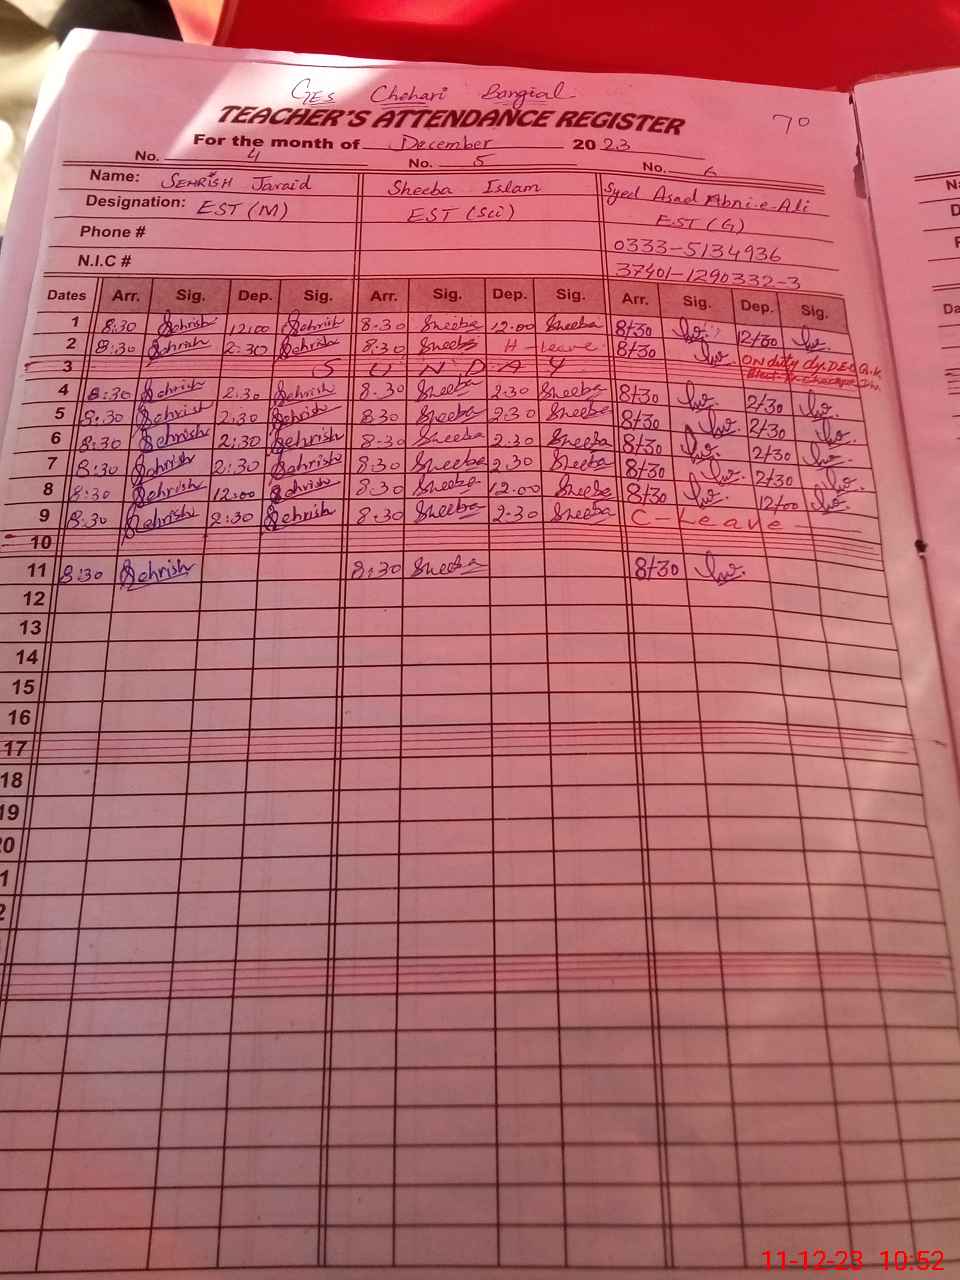 GES Chehari Bangial
TEACHER'S ATTENDANCE REGISTER
70
For the month of December 2023
No. 4 No. 5 No. 6
Name: SEHRISH Javaid Sheeba Islam Syed Asad Abni-e-Ali
Designation: EST (M) EST (Sci) EST (G)
Phone # 0333-5134936
N.I.C # 37401-1290332-3
Dates Arr. Sig. Dep. Sig. Arr. Sig. Dep. Sig. Arr. Sig. Dep. Sig.
1 8:30 Sehrish 12:00 Sehrish 8:30 Sheeba 12:00 Sheeba 8/30 12/30
2 8:30 Sehrish 2:30 Sehrish 8:30 Sheeba H-Leave 8/30 On duty dy. DEO
3 S U N D A Y
4 8:30 Sehrish 2:30 Sehrish 8:30 Sheeba 2:30 Sheeba 8/30 2/30
5 8:30 Sehrish 2:30 Sehrish 8:30 Sheeba 2:30 Sheeba 8/30 2/30
6 8:30 Sehrish 2:30 Sehrish 8:30 Sheeba 2:30 Sheeba 8/30 2/30
7 8:30 Sehrish 2:30 Sehrish 8:30 Sheeba 2:30 Sheeba 8/30 2/30
8 8:30 Sehrish 12:00 Sehrish 8:30 Sheeba 12:00 Sheeba 8/30 12/00
9 8:30 Sehrish 2:30 Sehrish 8:30 Sheeba 2:30 Sheeba C-Leave
10
11 8:30 Sehrish 8:30 Sheeba 8/30
12
13
14
15
16
17
18
19
20
1
2
11-12-23 10:52